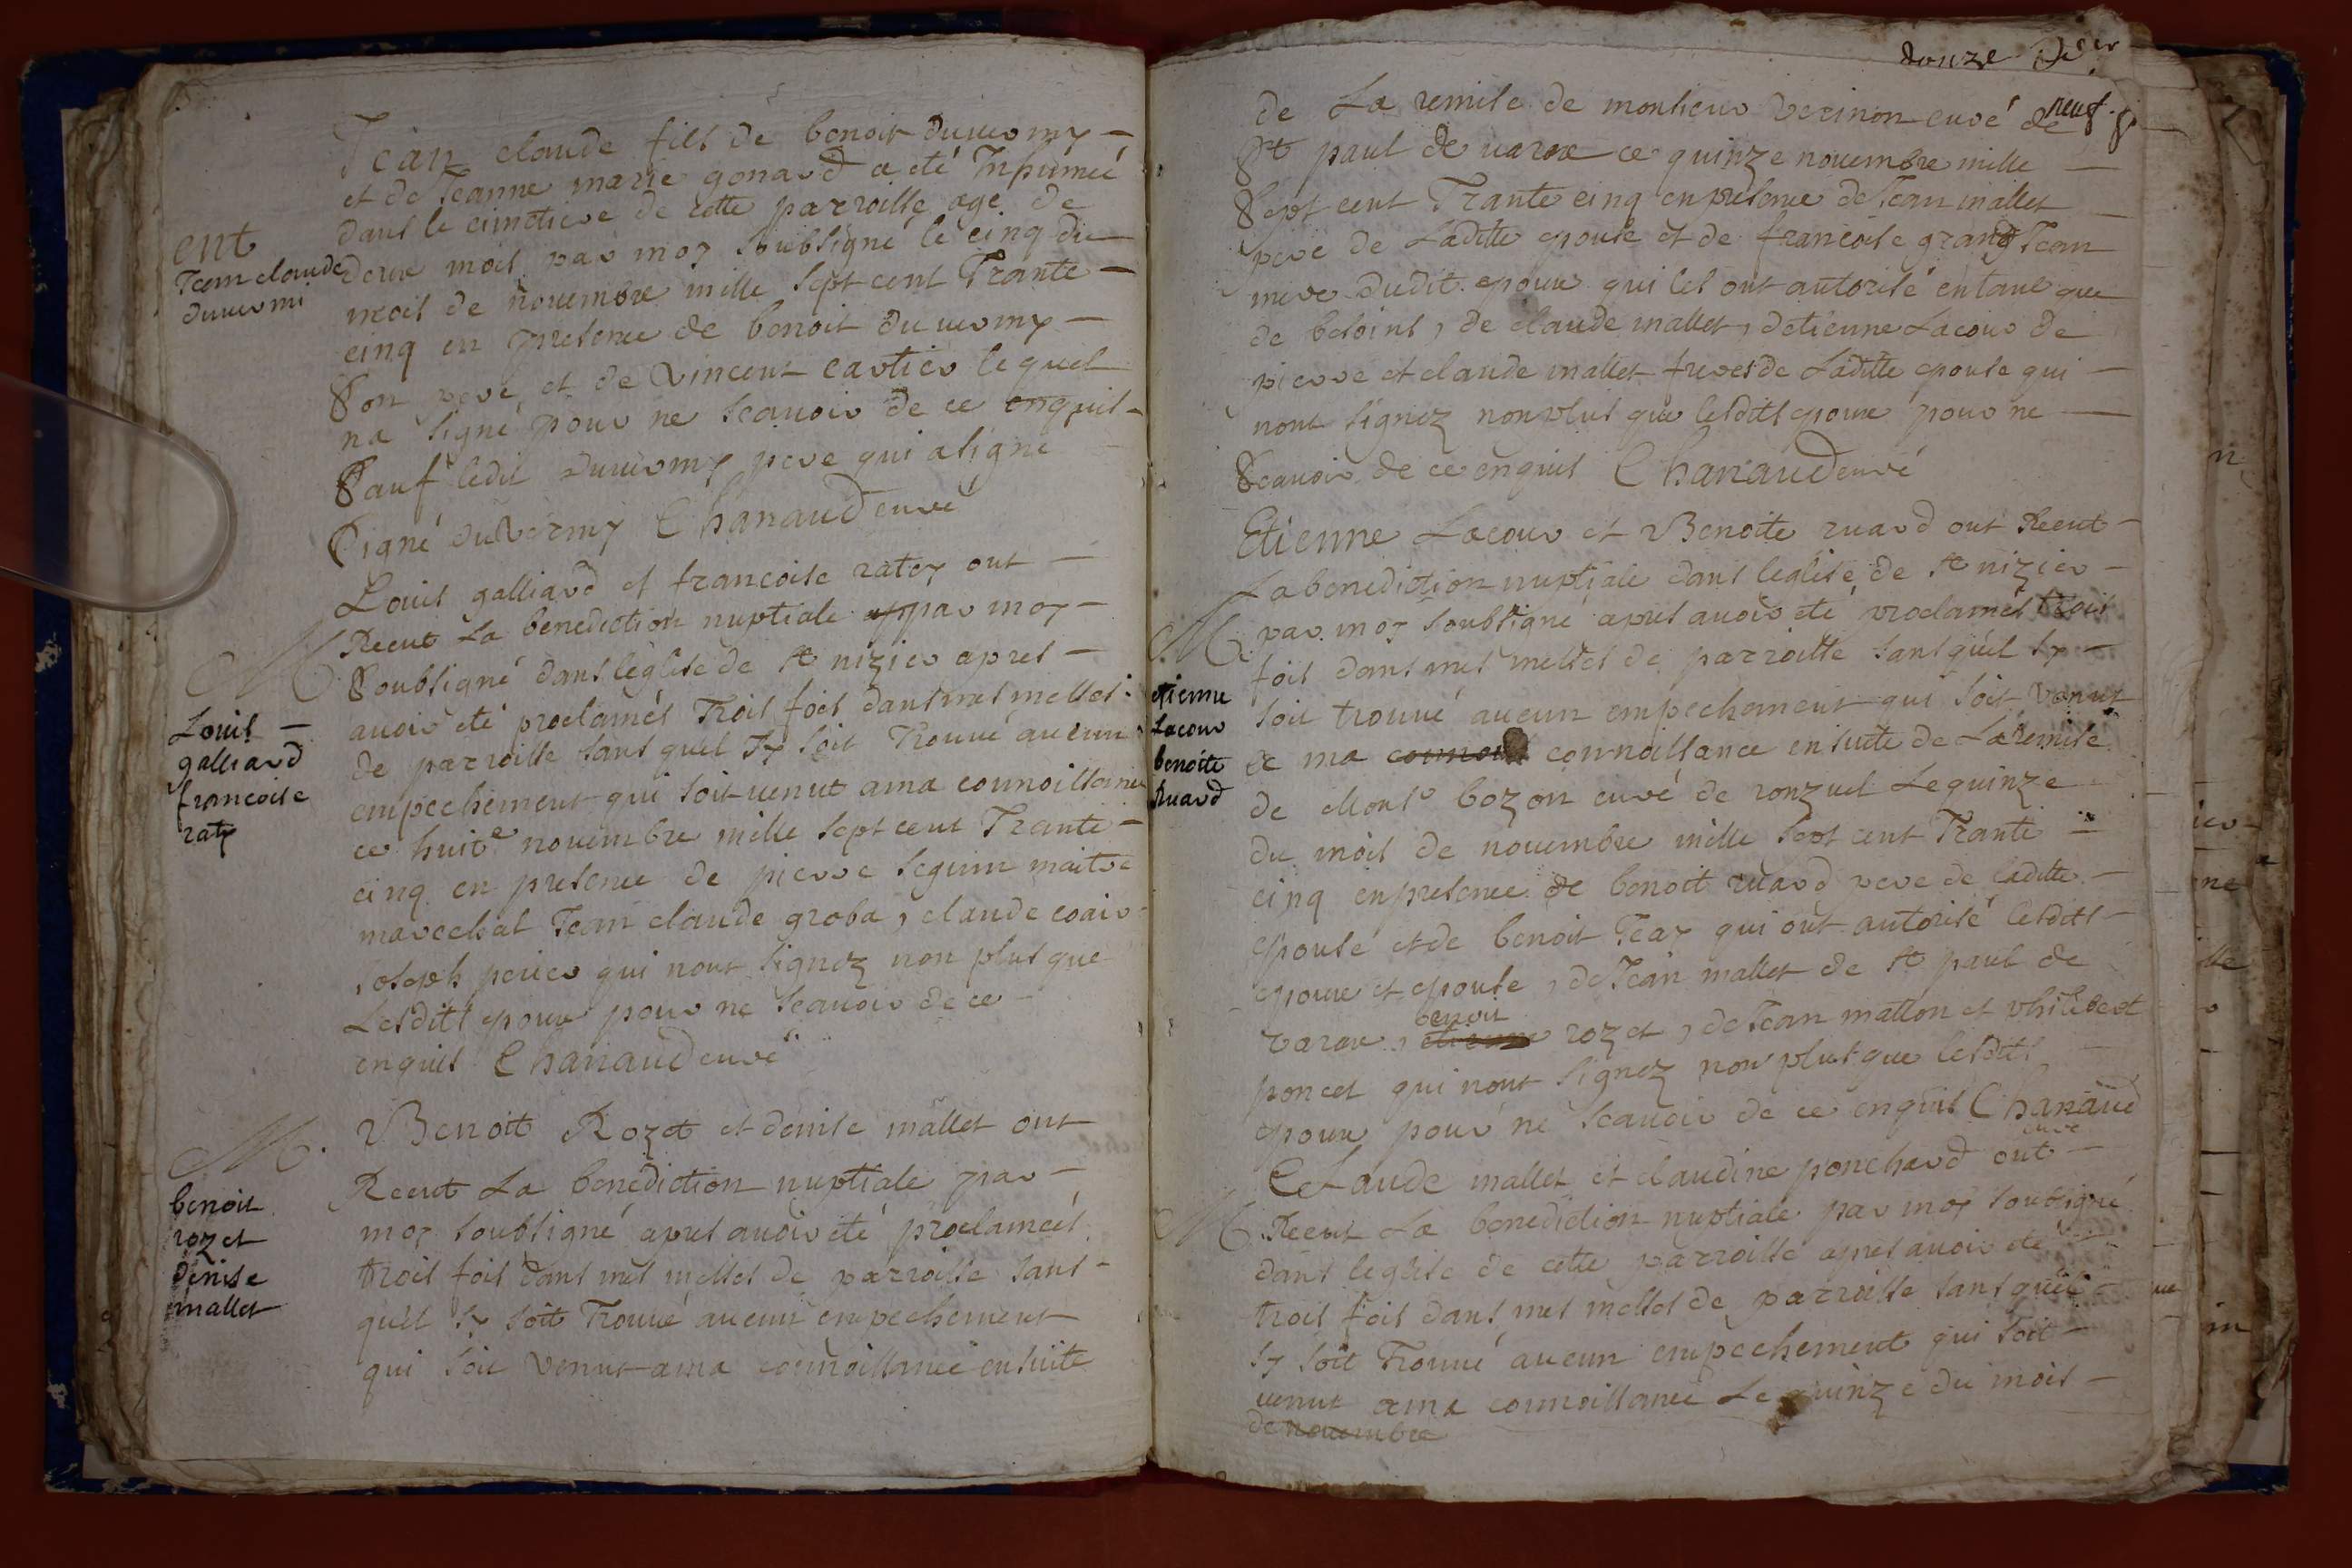 Jean claude fils de benoit duvermy –
et de Jeanne marie gonard a eté Inhumeé
dans le cimetiere de cette parroisse age de
ent
Jean claude
duvermi
deux mois par moy soubsigné le cinq du
mois de novembre mille sept cent Trante –
cinq en presence de benoit duvermy –
Son pere, et de vincent cartier lequel
na signé pour ne scavoir de ce enquis –
Sauf ledit duvermy pere qui asigné
Signé duvermy Chanaud curé
Louis galliard et francoise ratey ont –
M
Louis –
galliard
francoise
raty
Receut La benediction nuptiale par moy –
Soubsigné dans leglise de st nizier apres –
avoir eté proclamés Trois fois dans mes messes
de parroisse sans quil sy soit Trouvé aucun
empechement qui soit venut ama connoissance
ce huite novembre mille sept cent Trante –
cinq en presence de pierre seguin maitre
marechal Jean claude groba, claude coair
, Joseph perier qui nont signez non plus que
Lesdits epoux pour ne scavoir de ce –
enquis Chanaud curé
M.
benoit
rozet
denise
mallet
Benoit Rozet et denise mallet ont
Receut La benediction nuptiale par –
moy soubsigné apres avoir eté proclameés
trois fois dans mes messes de parroisse sans –
quil sy soit Trouvé aucun empechement
qui soit venut ama connoissance ensuite
douze
neuf
de La remise de monsieur verinon curé de
St paul de varax ce quinze novembre mille –
Sept cent Trante cinq enpresence de Jean mallet –
pere de Laditte epouse et de francoise grand Jean
mere dudit epoux qui les ont autorisé entant que
de besoins, de claude mallet, detienne Lacour de
pierre et claude mallet freres de Laditte epouse qui –
nont signez nonplus que lesdits epoux pour ne –
Scavoir de ce enquis Chanaud curé
Etienne Lacour et Benoite ruard ont Receut –
M
etienne
Lacour
benoite
Ruard
La benediction nuptiale dans leglise de st nizier –
par moy soubsigné apres avoir eté proclamés trois
fois dans mes messes de parroisse sans quil sy –
soit trouvé aucun empechement qui soit venut
a ma connoissance ensuite de La remise
de Monsr bozon curé de ronzuel Le quinze
du mois de novembre mille sept cent Trante –
cinq enpresence de benoit ruard pere de Laditte –
epouse et de benoit Jeay qui ont autorisé lesdits –
epoux et epouse, de Jean mallet de st paul de
varax, benoit rozet, de Jean mallon et philibert
poncet qui nont signez non plus que lesdits
epoux pour ne scavoir de ce enquis Chanaud
curé
M
Claude mallet et claudine ponchard ont –
Receut La benediction nuptiale par moy soubsigné
dans leglise de cette parroisse apres avoir eté
trois fois dans mes messes de parroisse sans quil
sy soit Trouvé aucun empechement qui soit –
venut ama connoissance Le quinze du mois –
de novembre